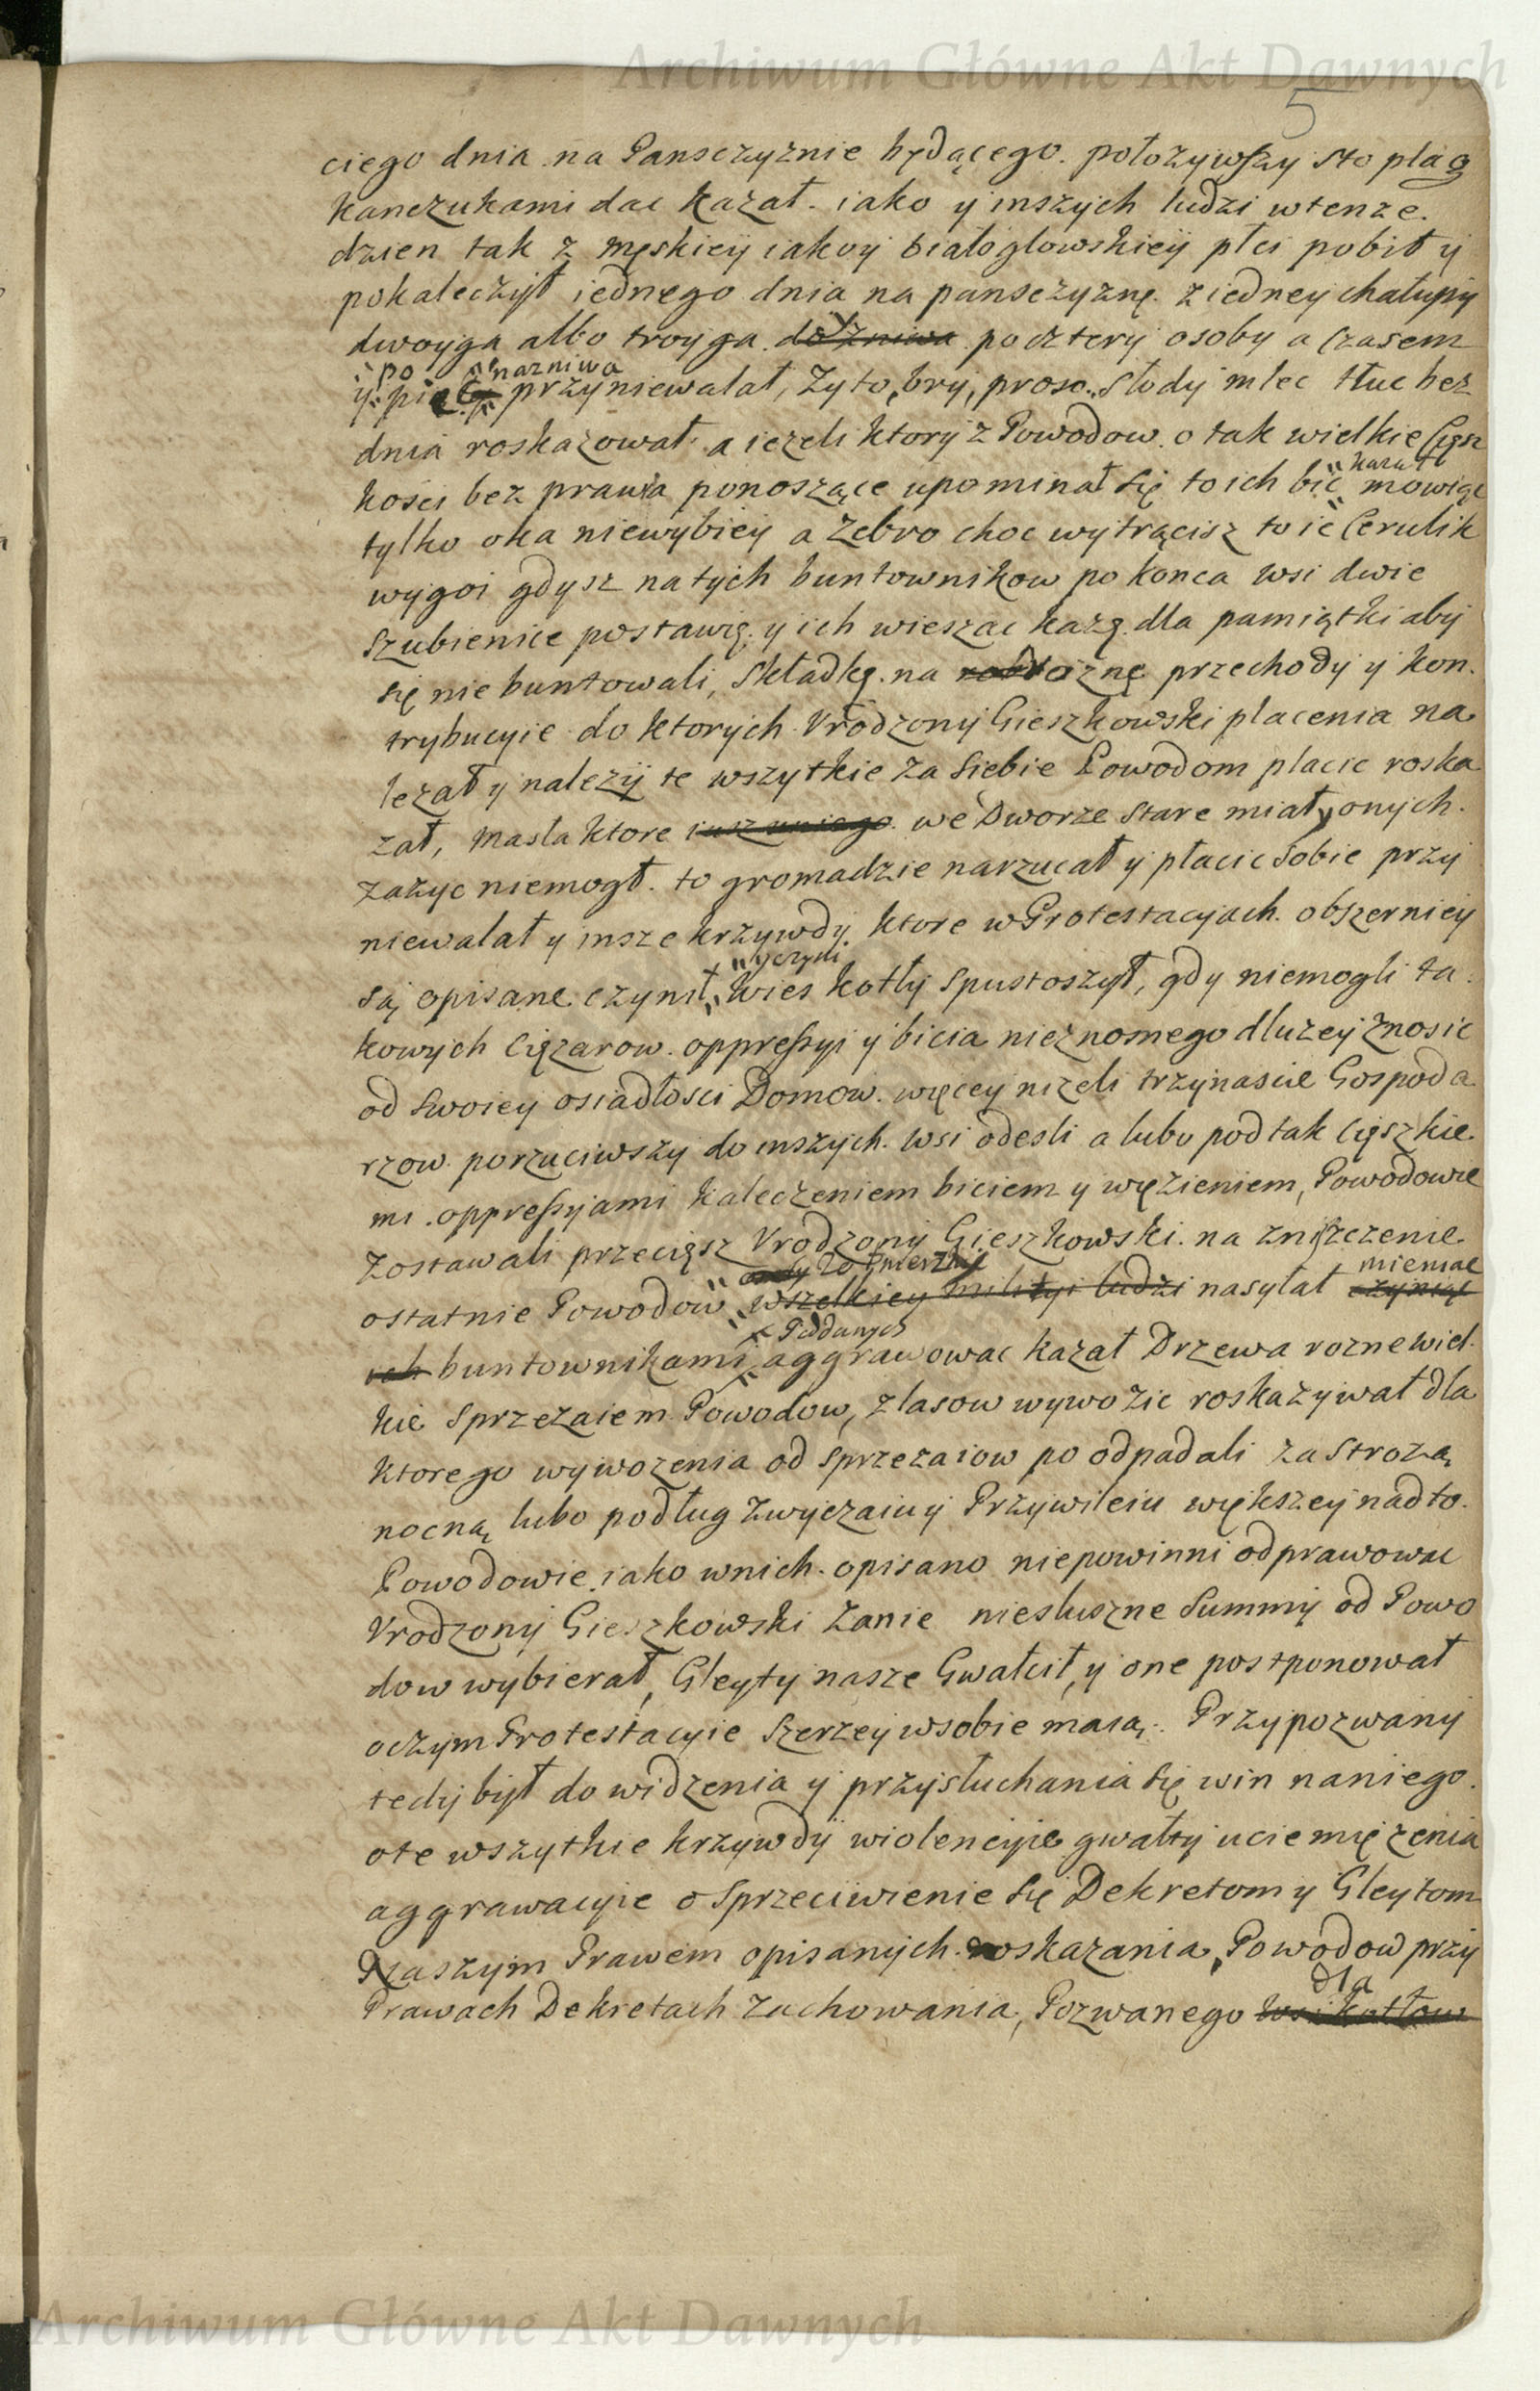 Archiwum Główne Akt Dawnych
5
ciego dnia na Pansczyznie będącego. położywszy sto plag
kanczukami dac kazał. iako y inszych ludzi wtenze.
dzien tak z męskiey iakoy białogłowskiey płci pobił y
pokaleczył iednego dnia na pansczyznę z iedney chałupy
dwoyga albo troyga do żniwa po cztery osoby a czasem
po na zniwa
y pięć przyniewalał, Zyto, bry, proso. Słody mlec tłuc bez
dnia roskazował a iezeli ktory z Powodow o tak wielkie Cięsz
kazał
kości bez prawia ponoszące upominał się to ich bić mowiąc
tylko oka niewybiey a Zebro choc wytrącisz to ie Cerulik
wygoi gdysz natych buntownikow po konca wsi dwie
szubienice postawię. y ich wieszac kazę. dla pamiątki aby
się nie buntowali, Składkę. na rożne przechody y kon.
trybucyie do ktorych Vrodzony Gieszkowski placenia na
lezał y nalezy te wszytkie za siebie Powodom placic roska
zał, masła ktore iusz uniego we Dworze stare miał y onych.
zażyc niemogł. to gromadzie narzucał y płacic sobie przy
niewalał y insze krzywdy ktore w Protestacyjach. obszerniey
są opisane czynił, y czyni Wies kotły spustoszył, gdy niemogli ta
kowych Cięzarow. oppressyi y bicia nieznosnego dluzey znosic
od swoiey osiadłosci Domow. więcey nizeli trzynascie Gospoda
rzow porzuciwszy do inszych. wsi odesli a lubo pod tak cięszkie
mi. oppressyjami kaleczeniem biciem y więzieniem, Powodowie
zostawali przeciąsz Vrodzony Gieszkowski. na zniszczenie
Zołnierzow mieniąc
ostatnie Powodow wszelkiey militiyi ludzi nasyłał czyniąc
Poddanych
ich buntownikami aggrawowac kazał Drzewa rozne wiel.
kie sprzezaiem Powodow, zlasow wywozic roskazywał dla
ktorego wywozenia od sprzezaiow po odpadali za strozą
nocną lubo podług zwyczaiu y Przywileiu większey nadto.
Powodowie iako wnich. opisano niepowinni odprawowac
Vrodzony Gieszkowski zanie niesłuszne Summy od Powo
dow wybierał, Gleyty nasze Gwałcił, y one postponował
oczym Protestacyie szerzey wsobie maią. Przypozwany
tedy był do widzenia y przysłuchania się win naniego.
ote wszytkie krzywdy wiolencyie gwałty uciemięzenia
aggrawacyie o sprzeciwienie się Dekretom y Gleytom
Naszym Prawem opisanych roskazania, Powodow przy
dla
Prawach Dekretach zachowania, Pozwanego wsi kotłow
Archiwum Główne Akt Dawnych